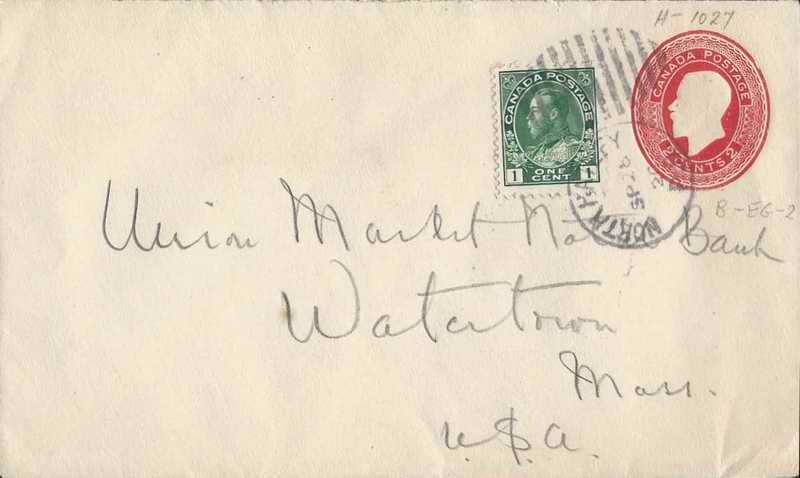 H-1027
CANADA POSTAGE
2 CENTS 2
CANADA POSTAGE
1 ONE CENT 1
NORTH
SP 26
B-EG-2
Union Market Nat Bank
Watertown
Mass.
U.S.A.